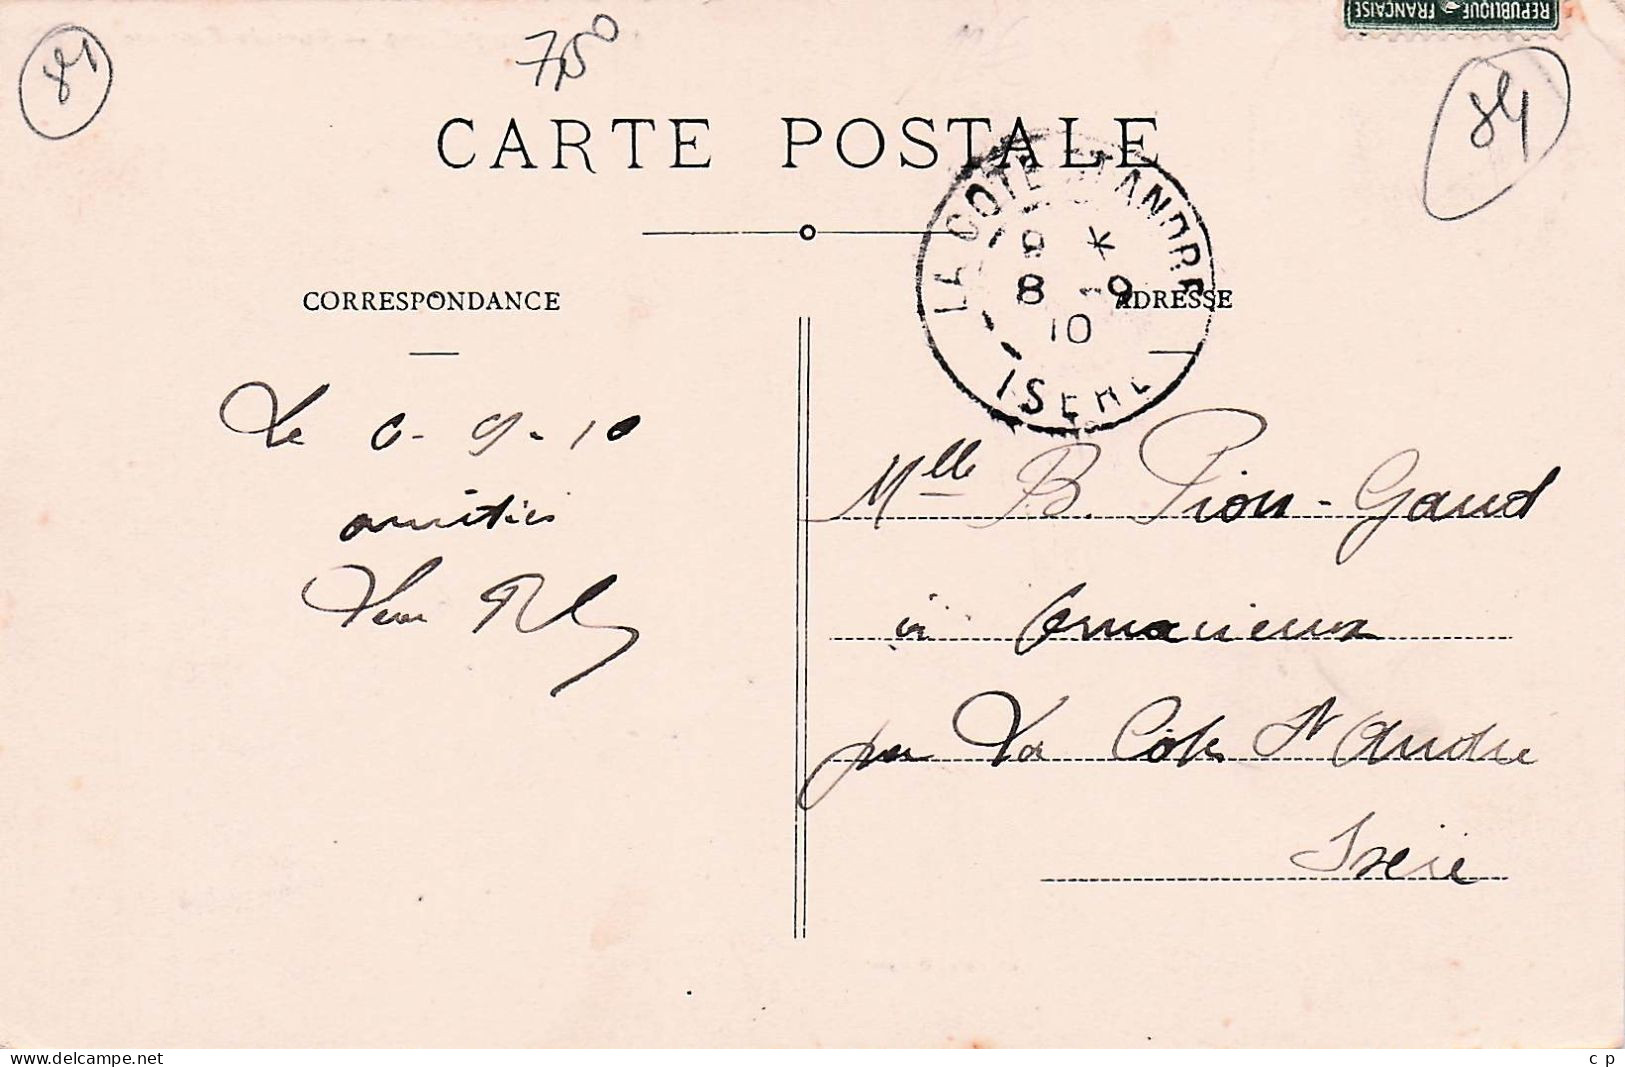 REPUBLIQUE FRANÇAISE
84
7,50
84
CARTE POSTALE
LA COTE ST ANDRE
8 *
8 -9
10
ISERE
CORRESPONDANCE
ADRESSE
Le 6-9-10
amitiés
Mlle B. Pion-Gaud
à Commarieux
par La Côte St André
Isère
www.delcampe.net
c p